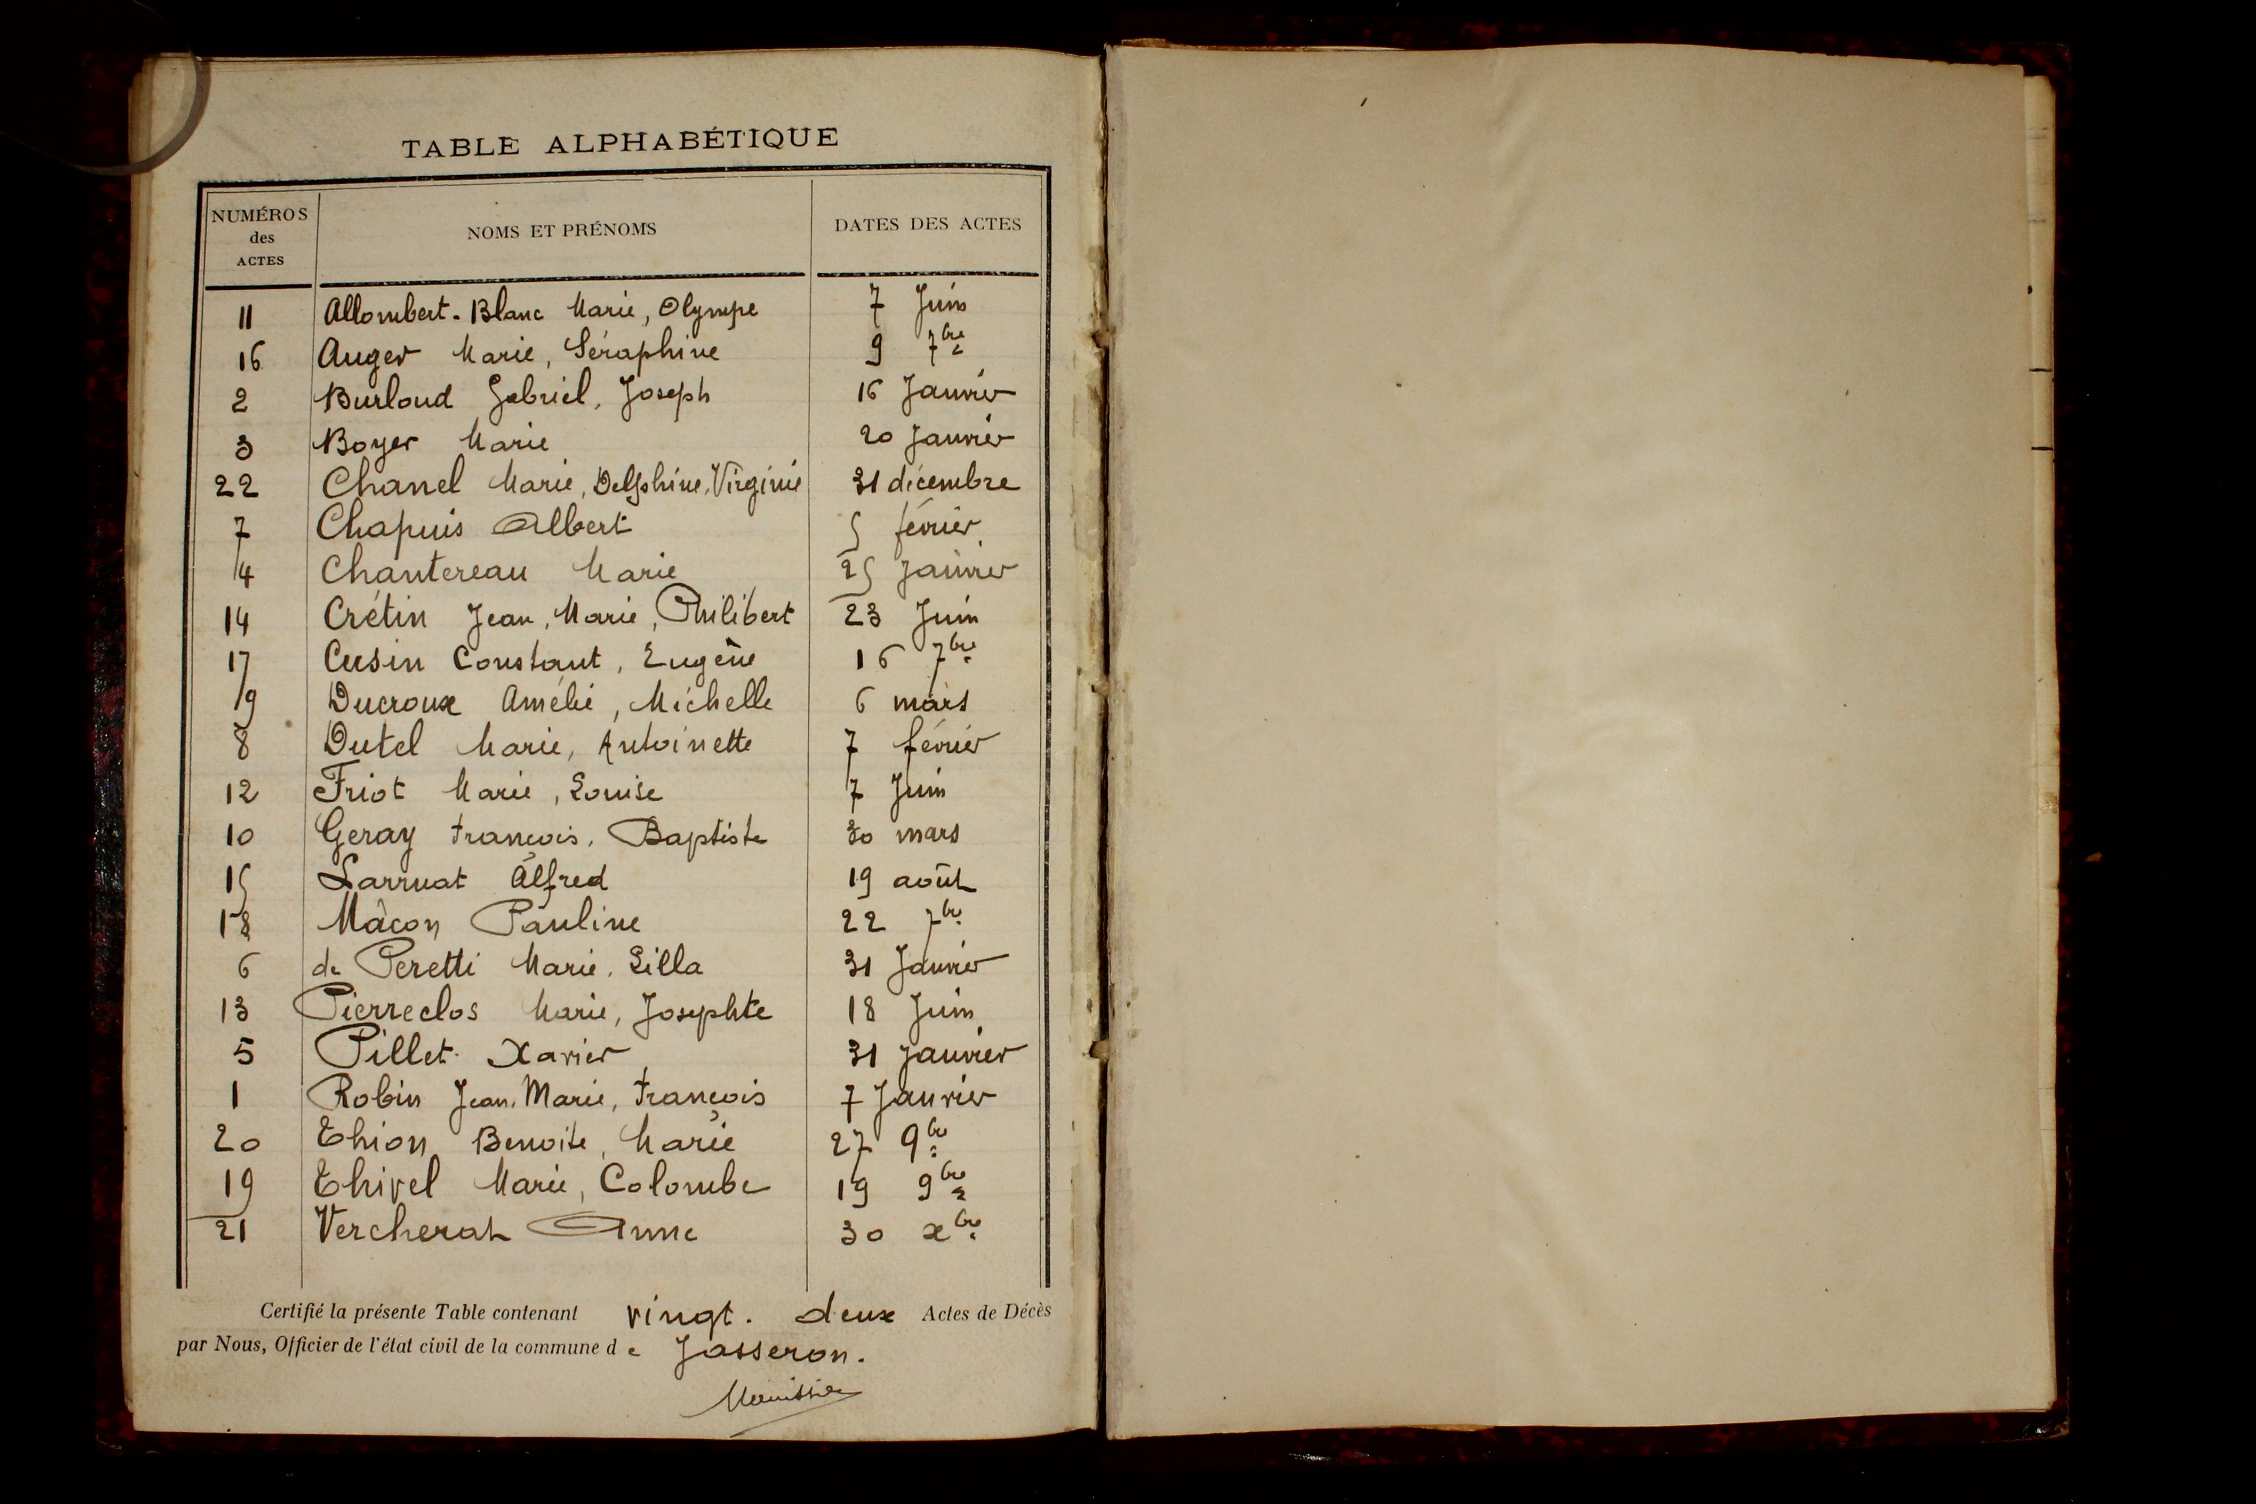 TABLE ALPHABÉTIQUE
NUMÉROS des ACTES NOMS ET PRÉNOMS DATES DES ACTES
11 Allombert-Blanc Marie, Olympe 7 Juin
16 Auger Marie, Séraphine 9 7bre
2 Burloud Gabriel, Joseph 16 Janvier
3 Boyer Marie 20 Janvier
22 Chanel Marie, Delphine, Virginie 31 décembre
7 Chapuis Albert 5 février
4 Chantereau Marie 25 Janvier
14 Crétin Jean, Marie, Philibert 23 Juin
17 Cusin Constant, Eugène 16 7bre
9 Ducroux Amélie, Michelle 6 mars
8 Dutel Marie, Antoinette 7 février
12 Friot Marie, Louise 7 Juin
10 Geray François, Baptiste 30 mars
15 Larruat Alfred 19 août
18 Mâcon Pauline 22 7bre
6 de Peretti Marie, Lilla 31 Janvier
13 Pierreclos Marie, Josephte 18 Juin
5 Pillet Xavier 31 Janvier
1 Robin Jean, Marie, François 7 Janvier
20 Thion Benoite, Marie 27 9bre
19 Thivel Marie, Colombe 19 9bre
21 Vercherat Anne 30 xbre
Certifié la présente Table contenant vingt-deux Actes de Décès
par Nous, Officier de l'état civil de la commune de Jasseron.